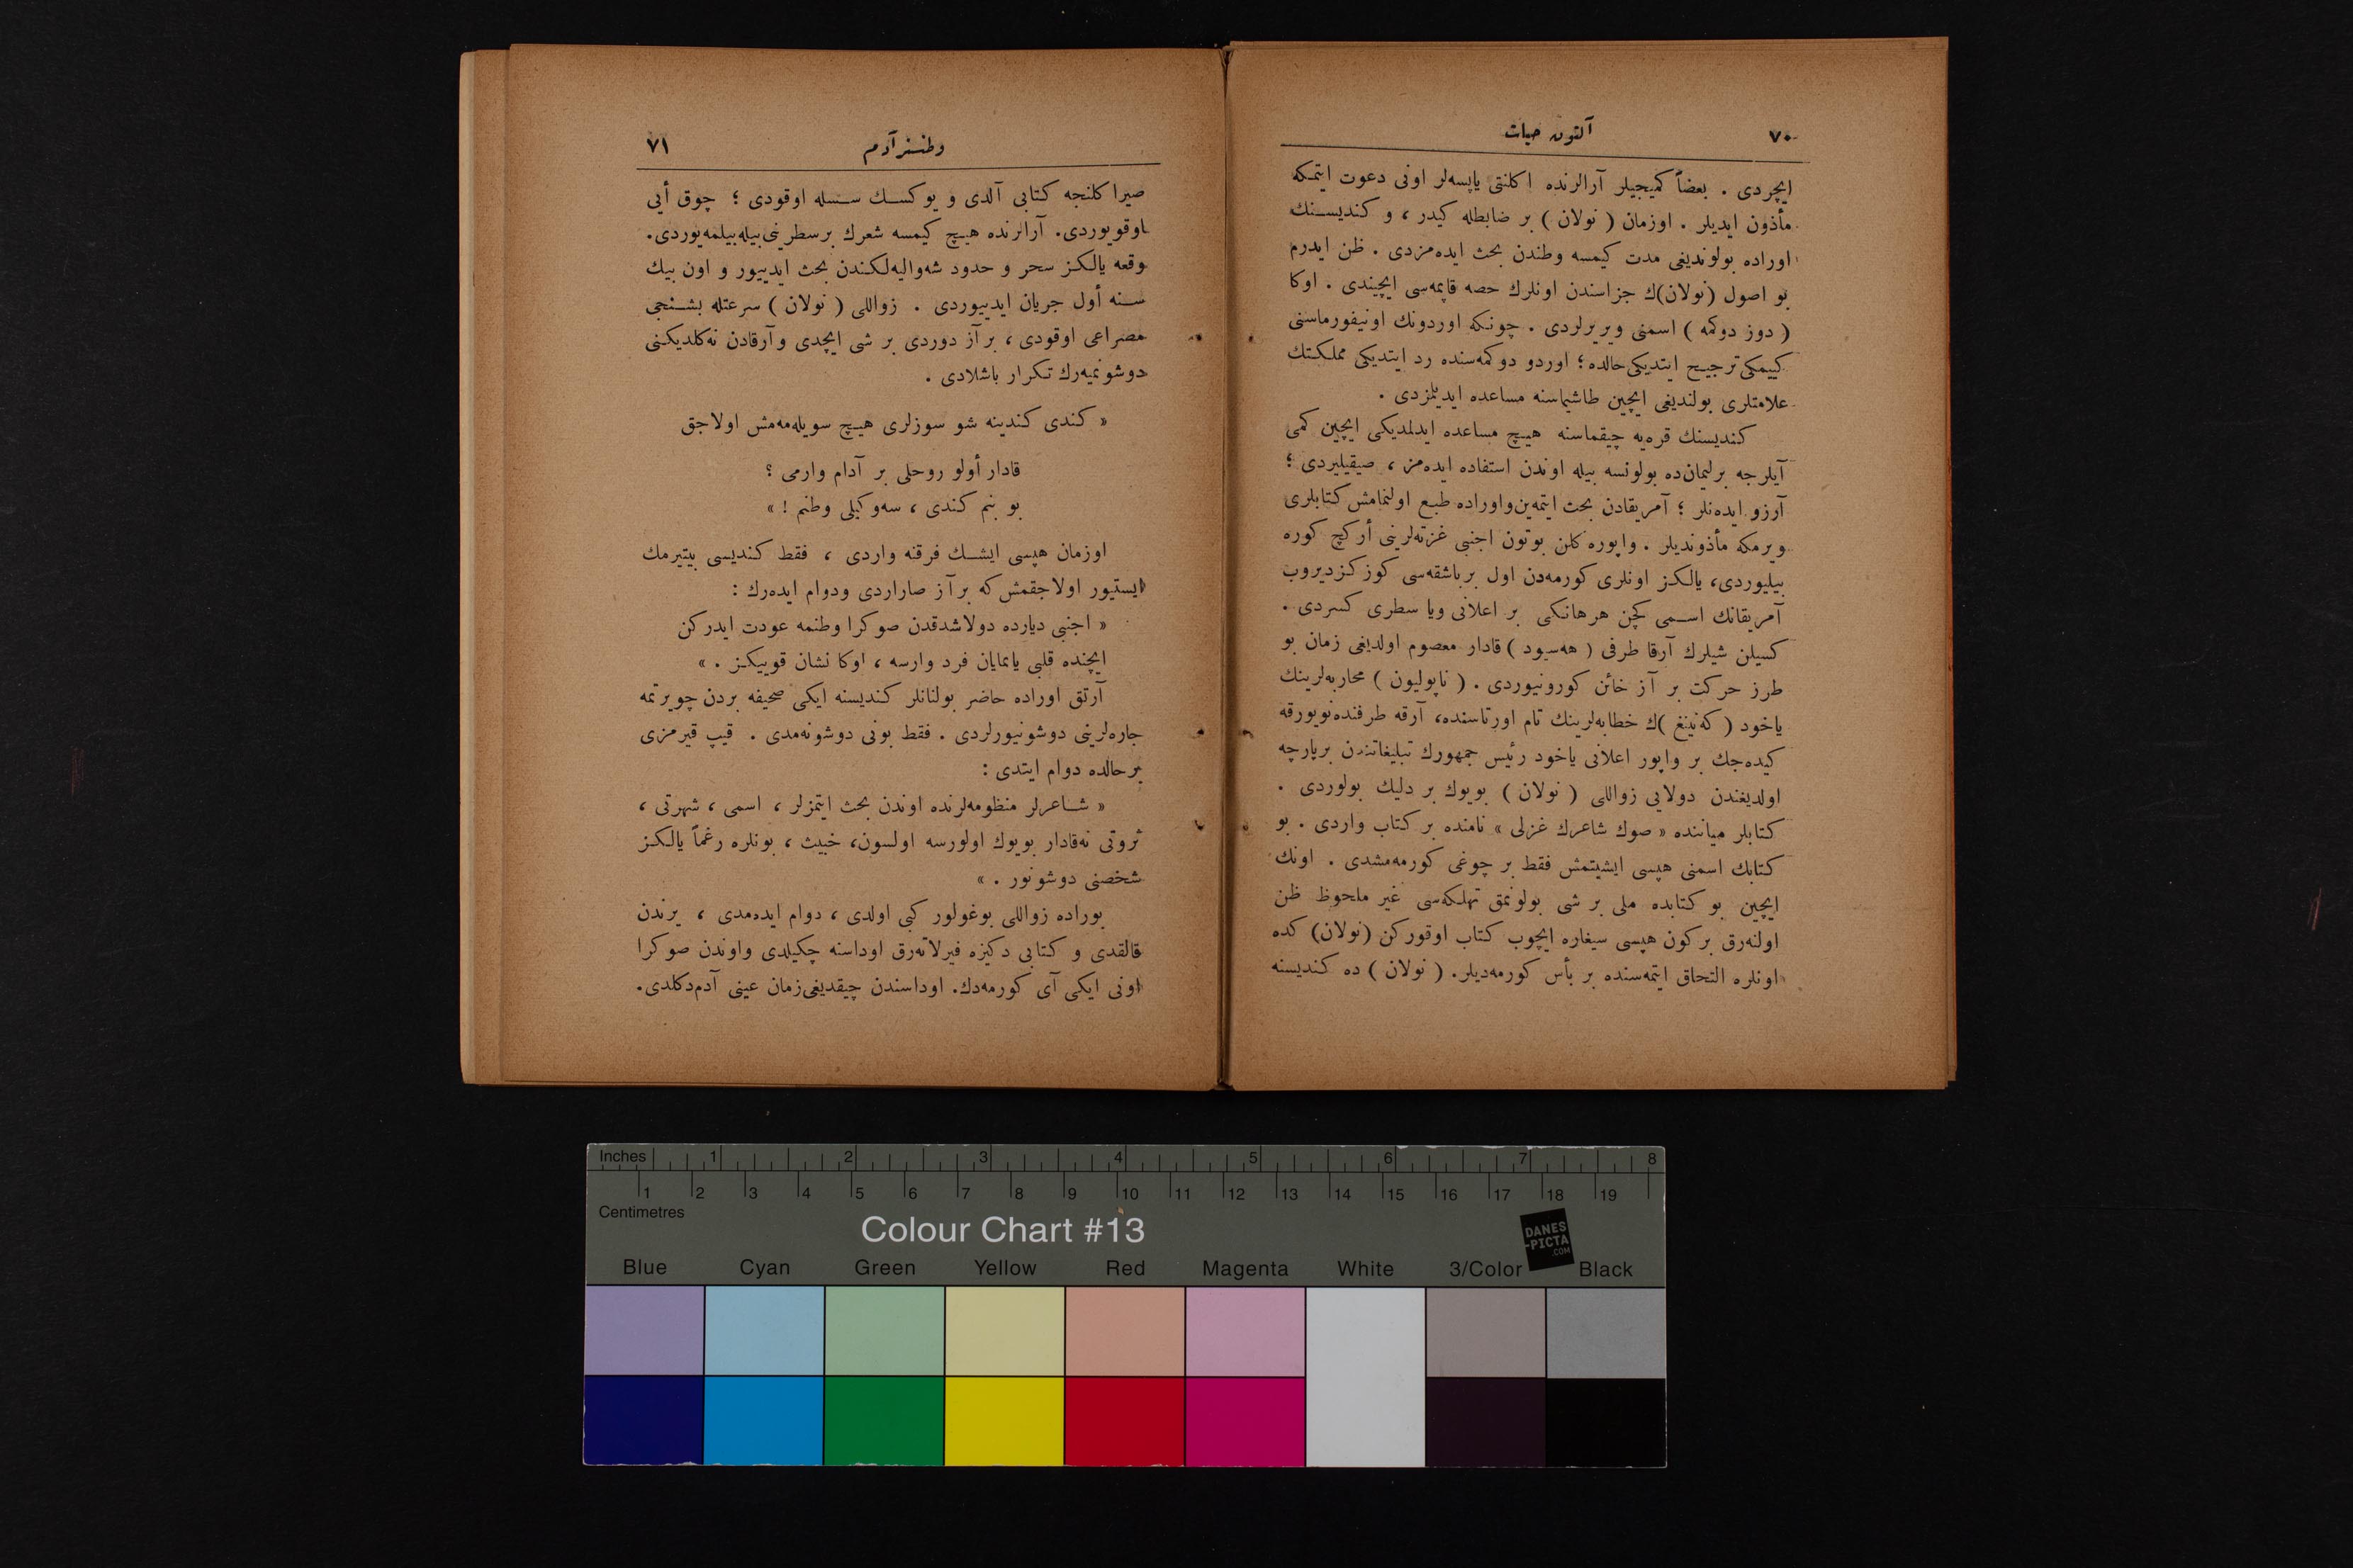 ٧٠
آلتون حیات
ایچردی . بعضاً کمیجیلر آرالرنده اکلنتی یاپسه‌لر اونی دعوت ایتمکه
مأذون ایدیلر . اوزمان ( نولان ) بر ضابطله کیدر ، و کندیسنك
اوراده بولوندیغی مدت کیمسه وطندن بحث ایده‌مزدی . ظن ایدرم
بو اصول (نولان)ك جزاسندن اونلرك حصه قاپمه‌سی ایچیندی . اوکا
( دوز دوکمه ) اسمنی ویریرلردی . چونکه اوردونك اونیفورماسنی
کییمکی ترجیح ایتدیکی حالده ؛ اوردو دوکمه‌سنده رد ایتدیکی مملکتك
علامتلری بولندیغی ایچین طاشیماسنه مساعده ایدیلمزدی .
کندیسنك قره‌یه چیقماسنه هیچ مساعده ایدلمدیکی ایچین کمی
آیلرجه برلیمان‌ده بولونسه بیله اوندن استفاده ایده‌مز ، صیقیلیردی ؛
آرزو ایده‌نلر ؛ آمریقادن بحث ایتمه‌ین‌واوراده طبع اولنمامش کتابلری
ویرمکه مأذوندیلر . واپوره کلن بوتون اجنبی غزته‌لرینی أرکچ کوره
بیلیوردی، یالکز اونلری کورمه‌دن اول برباشقه‌سی کوز کزدیروب
آمریقانك اسمی کچن هرهانکی بر اعلانی ویا سطری کسردی .
کسیلن شیلرك آرقا طرفی ( هه‌سیود ) قادار معصوم اولدیغی زمان بو
طرز حرکت بر آز خائن کورونیوردی . ( ناپولیون ) محاربه‌لرینك
یاخود ( که‌نینغ )ك خطابه‌لرینك تام اورتاسنده، آرقه طرفنده‌نویورقه
کیده‌جك بر واپور اعلانی یاخود رئیس جمهورك تبلیغاتندن برپارچه
اولدیغندن دولایی زواللی ( نولان ) بویوك بر دلیك بولوردی .
کتابلر میاننده « صوك شاعرك غزلی » نامنده بر کتاب واردی . بو
کتابك اسمنی هپسی ایشیتمش فقط بر چوغی کورمه‌مشدی . اونك
ایچین بو کتابده ملی بر شی بولونمق تهلکه‌سی غیر ملحوظ ظن
اولنه‌رق برکون هپسی سیغاره ایچوب کتاب اوقورکن (نولان) كده
اونلره التحاق ایتمه‌سنده بر بأس کورمه‌دیلر. ( نولان ) ده کندیسنه
وطنسز آدم
٧١
صیرا کلنجه کتابی آلدی و یوکسك سسله اوقودی ؛ چوق أیی
اوقویوردی. آرالرنده هیچ کیمسه شعرك برسطرینی‌بیله‌بیلمه‌یوردی.
وقعه یالکز سحر و حدود شه‌والیه‌لکندن بحث ایدییور و اون بیك
سنه أول جریان ایدییوردی . زواللی ( نولان ) سرعتله بشنجی
مصراعی اوقودی ، بر آز دوردی بر شی ایچدی و آرقادن نه‌کلدیکنی
دوشونمیه‌رك تکرار باشلادی .
« کندی کندینه شو سوزلری هیچ سویله‌مه‌مش اولاجق
قادار أولو روحلی بر آدام وارمی ؟
بو بنم کندی ، سه‌وکیلی وطنم ! »
اوزمان هپسی ایشك فرقنه واردی ، فقط کندیسی بیتیرمك
ایستیور اولاجقمش که بر آز صاراردی ودوام ایده‌رك :
« اجنبی دیارده دولاشدقدن صوکرا وطنمه عودت ایدرکن
ایچنده قلبی یانمایان فرد وارسه ، اوکا نشان قوییکز . »
آرتق اوراده حاضر بولنانلر کندیسنه ایکی صحیفه بردن چویرتمه
چاره‌لرینی دوشونیورلردی . فقط بونی دوشونه‌مدی . قیپ قیرمزی
برحالده دوام ایتدی :
« شاعرلر منظومه‌لرنده اوندن بحث ایتمزلر ، اسمی ، شهرتی ،
ثروتی نه‌قادار بویوك اولورسه اولسون، خبیث ، بونلره رغماً یالکز
شخصنی دوشونور . »
بوراده زواللی بوغولور کبی اولدی ، دوام ایده‌مدی ، یرندن
قالقدی و کتابی دکیزه فیرلاته‌رق اوداسنه چکیلدی واوندن صوکرا
اونی ایکی آی کورمه‌دك. اوداسندن چیقدیغی‌زمان عینی آدم‌دکلدی.
Inches 1 2 3 4 5 6 7 8
1 2 3 4 5 6 7 8 9 10 11 12 13 14 15 16 17 18 19
Centimetres
Colour Chart #13
DANES
-PICTA
.COM
Blue Cyan Green Yellow Red Magenta White 3/Color Black